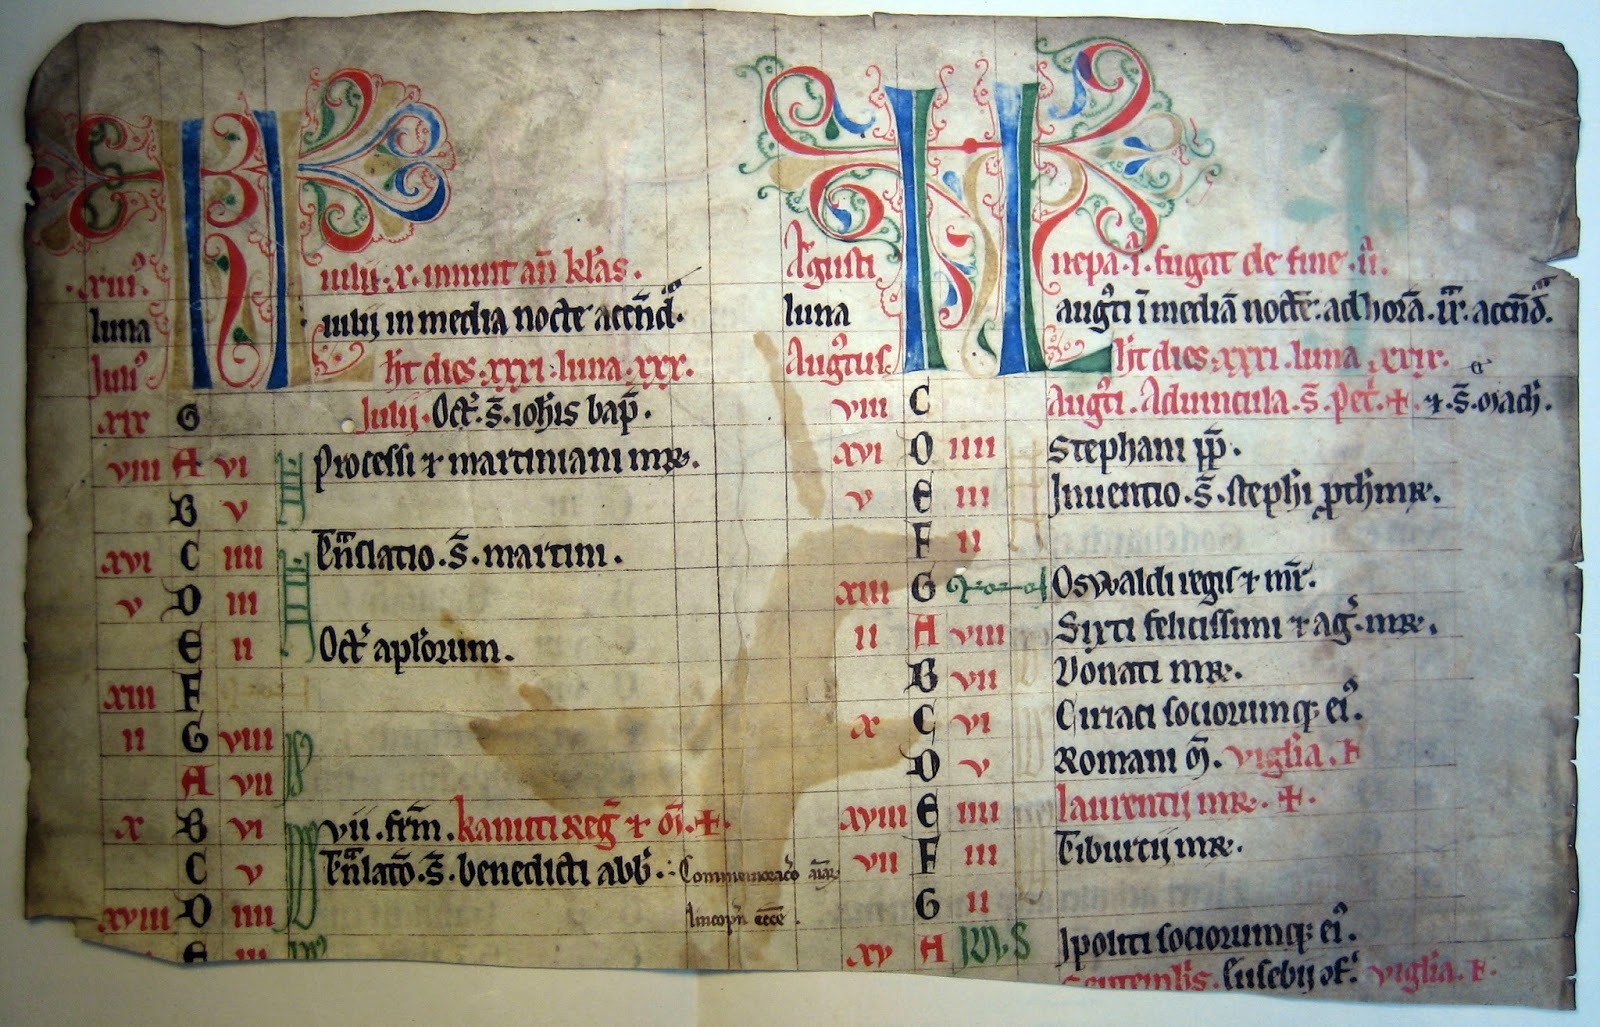 xiii⁹ iulii · x · innuit añ kl'as .
luna iulii in media nocte accn̄d'.
Juli⁹ h't dies · xxxi · luna · xxx ·
xix G Julii · Oct' · s̄ · ioh'is bap̄ .
viii A vi Processi ⁊ martiniani mr̄ .
B v
xvi C iiii Trn̄slatio · s̄ · martini .
v D iii
E ii Oct' apl'orum .
xiii F
ii G viii
A vii
x B vi vii . fr̄m . kanuti reg̃ ⁊ m̃ . ✠
C v Trn̄lac̄o · s̄ · benedicti abb' .
xviii D iiii
E iii
Commemorac̄o
lincopn̄ ecc̄e .
Augusti KL nepa · i' · fugat de fine · ii' .
luna augusti ī mediā noctē · ad horā · accn̄d' .
August⁹ h't dies · xxxi · luna · xxix ·
viii C Aug'ti . Aduincula · s̄ · pet' · ✠ . ⁊ · s̄ · mach' .
xvi D iiii Stephani pp̄ .
v E iii Inuentio · s̄ · steph'i proth'mr̄ .
F ii
xiii G Non Oswaldi regis ⁊ mr̄ .
ii A viii Sixti felicissimi ⁊ ag' · mr̄ .
B vii Donati mr̄ .
x C vi Ciriaci sociorumq; ei⁹ .
D v Romani m̃ . vigl'ia . F
xviii E iiii laurentii mr̄ . ✠ .
vii F iii Tiburtii mr̄ .
G ii
xv A IDVS Ipoliti sociorumq; ei⁹ .
Septembris . Eusebii 9f' . vigl'ia . F .